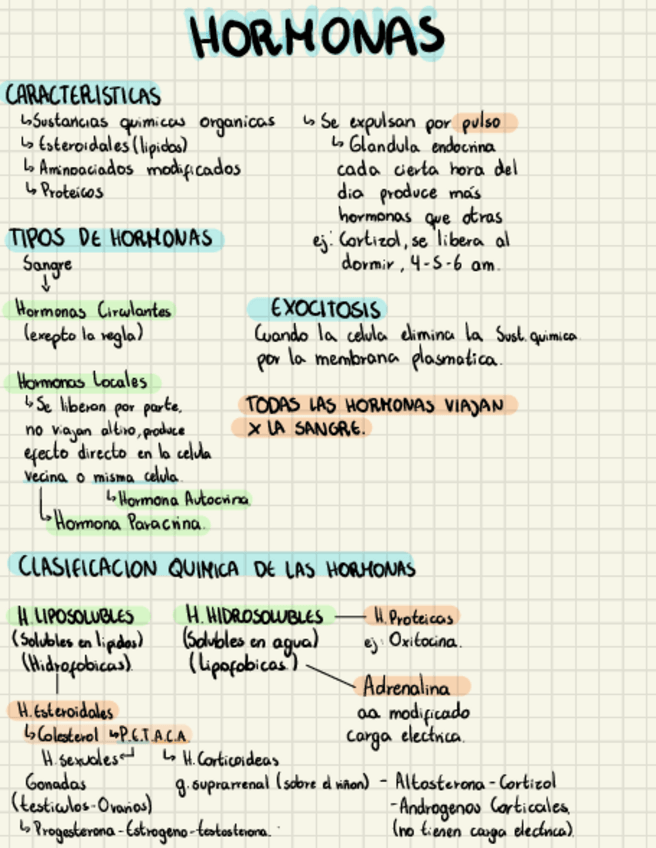 HORMONAS
CARACTERISTICAS
↳Sustancias quimicas organicas
↳ Esteroidales (lipidos)
↳ Aminoaciados modificados
↳ Proteicos
↳ Se expulsan por pulso
↳ Glandula endocrina
cada cierta hora del
dia produce más
hormonas que otras
ej: Cortizol, se libera al
dormir, 4-5-6 am.
TIPOS DE HORMONAS
Sangre
↓
Hormonas Circulantes
(exepto la regla)
Hormonas Locales
↳Se liberan por parte,
no viajan altiro, produce
efecto directo en la celula
vecina o misma celula.
↳Hormona Autocrina
↳Hormona Paracrina.
EXOCITOSIS
Cuando la celula elimina la Sust. quimica
por la membrana plasmatica.
TODAS LAS HORMONAS VIAJAN
X LA SANGRE.
CLASIFICACION QUIMICA DE LAS HORMONAS
H. LIPOSOLUBLES
(Solubles en lipidos)
(Hidrofobicas)
H. Esteroidales
↳Colesterol ↳P.E.T.A.C.A
H. sexuales↵ ↳ H. Corticoideas
Gonadas
(testiculos-Ovarios)
↳ Progesterona-Estrogeno-testosterona.
g. suprarrenal (sobre el riñon) - Altosterona-Cortizol
-Androgenos Corticales.
(no tienen carga electrica)
H. HIDROSOLUBLES
(Solubles en agua)
(Lipofobicas)
H. Proteicas
ej: Oxitocina.
Adrenalina
aa modificado
carga electrica.